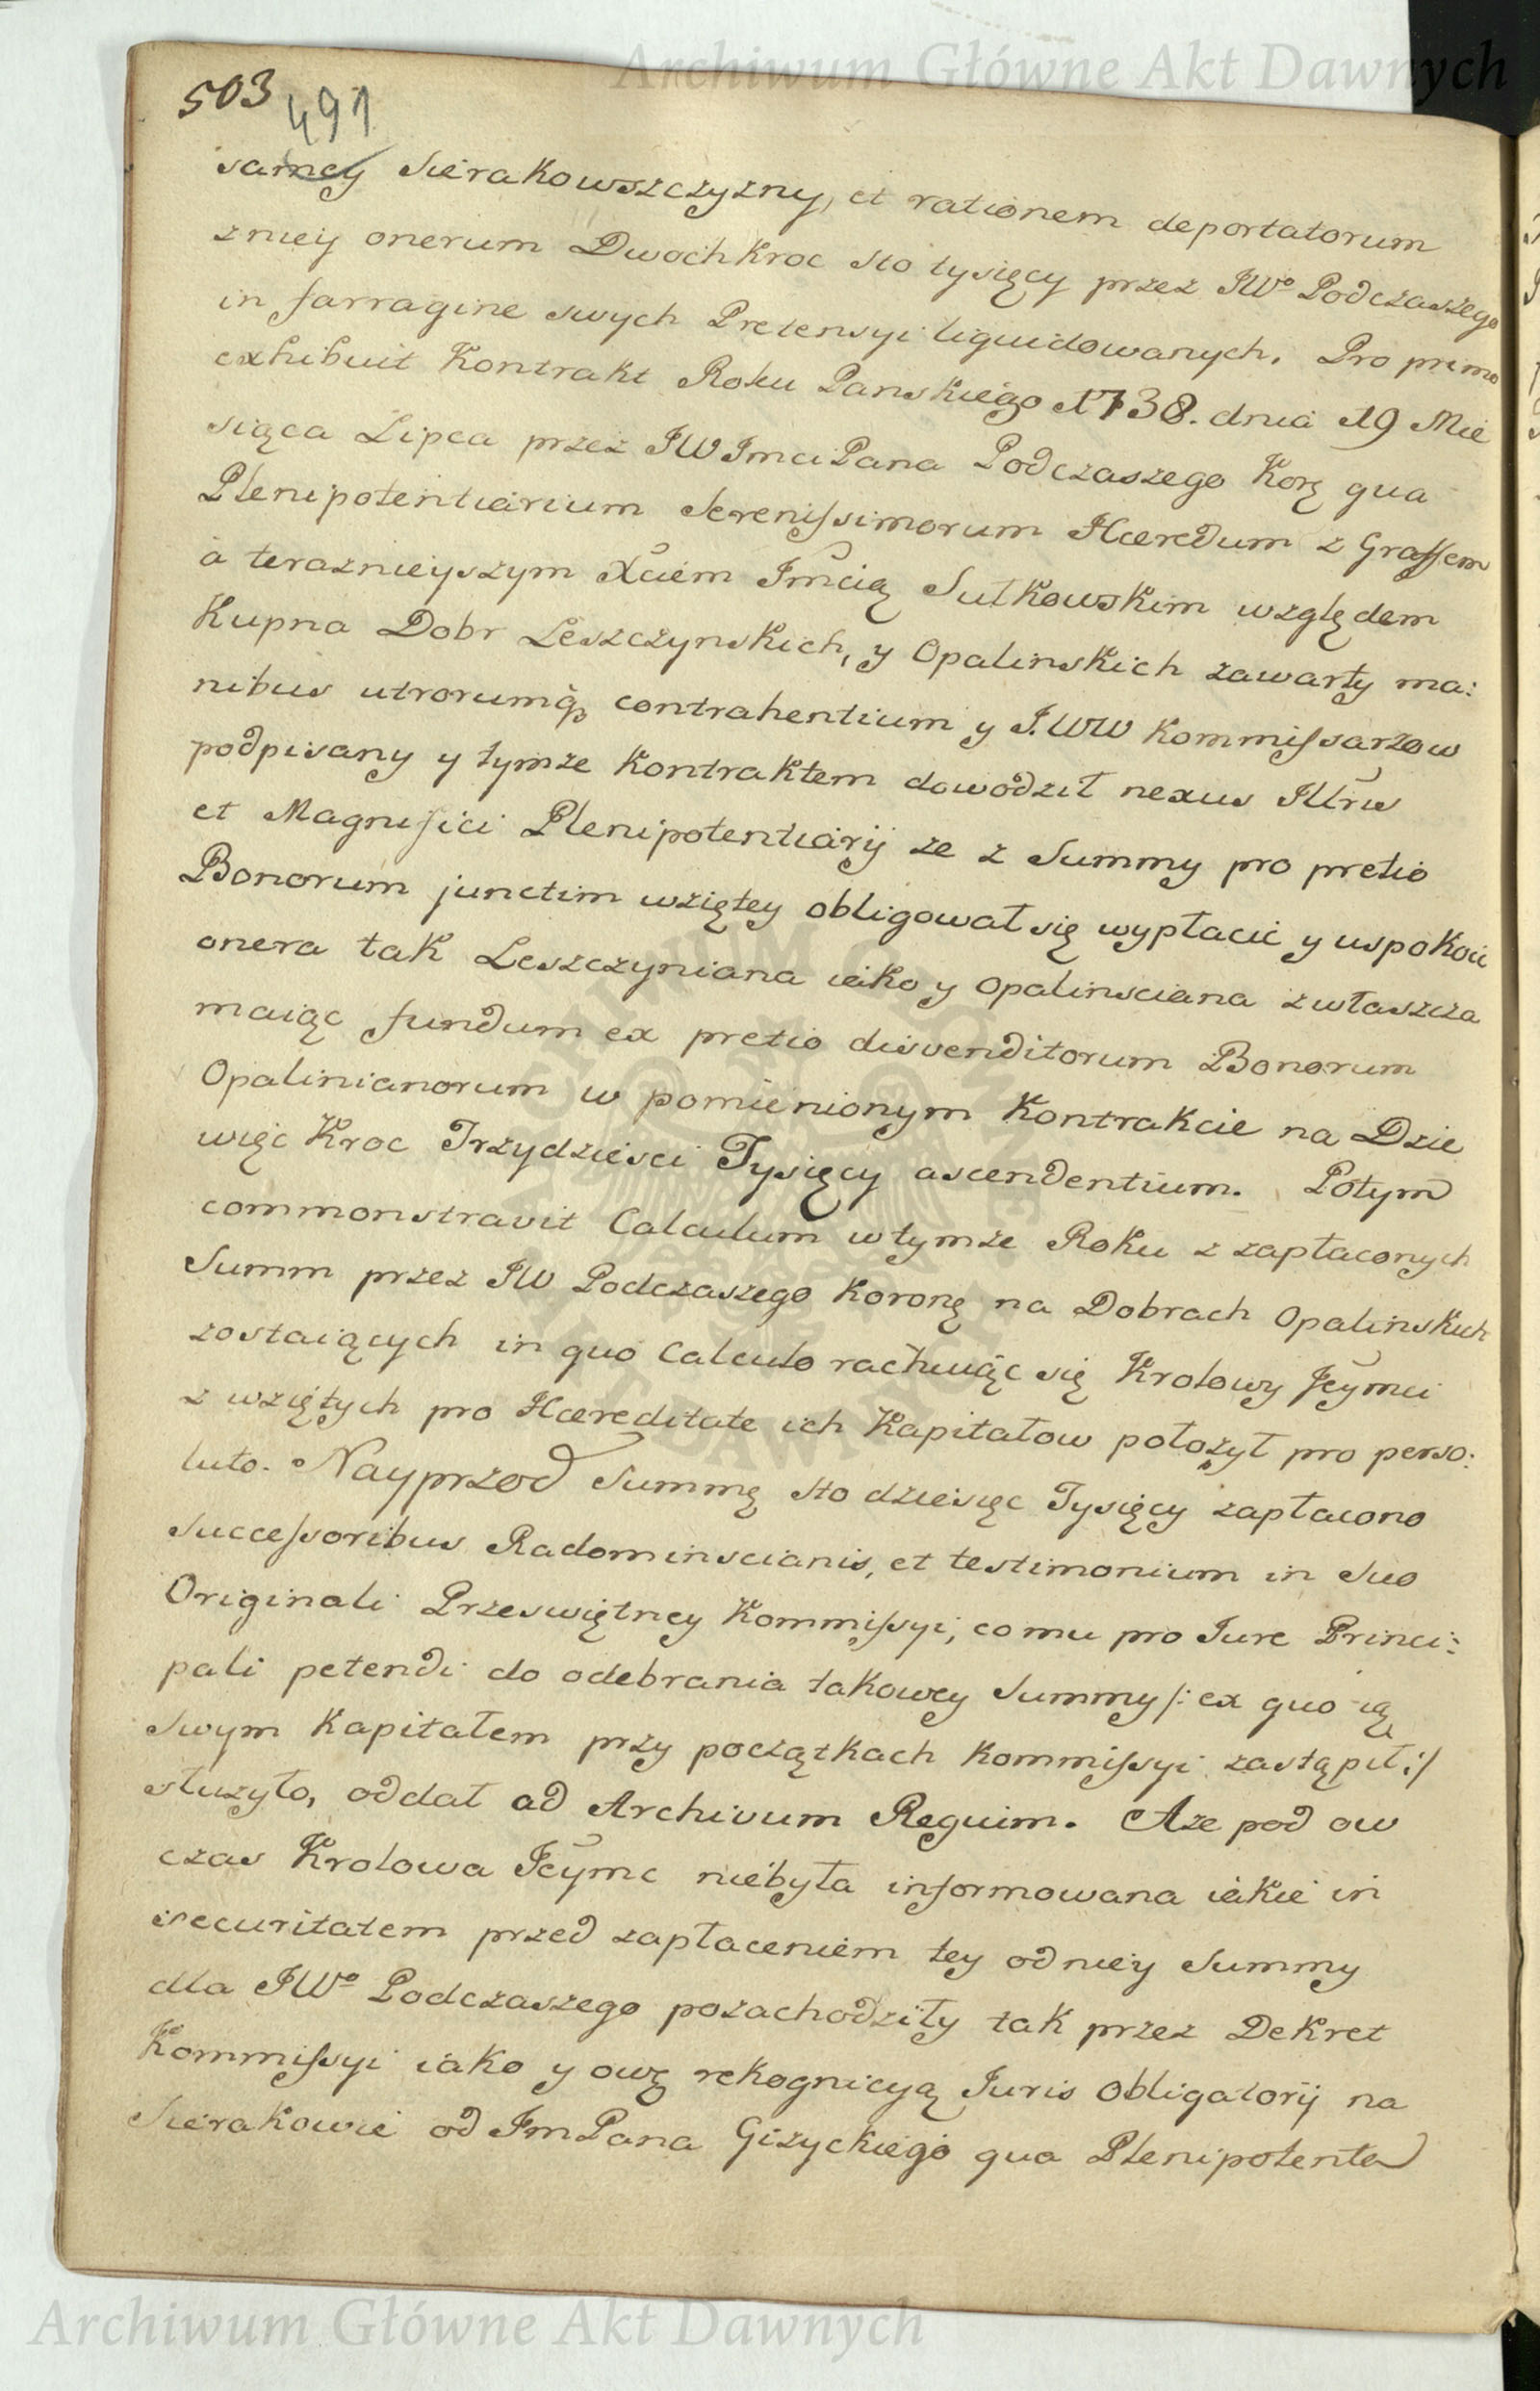 Archiwum Główne Akt Dawnych
503
491
samey Sierakowszczyzny, et rationem deportatorum
zniey onerum Dwochkroc sto tysięcy przez JWº Podczaszego
in farragine swych Pretensyi liquidowanych. Pro primo
exhibuit Kontrakt Roku Panskiego 1738. dnia 19 Mie
siąca Lipca przez JW Imci Pana Podczaszego Korę qua
Plenipotentiarium Serenissimorum Hæredum z Graffem
à teraznieyszym Xciem Imcią Sułkowskim względem
Kupna Dobr Leszczynskich, y Opalinskich zawarty ma:
nibus utrorumq, contrahentium y J.WW Kommissarzow
podpisany y tymze Kontraktem dowodził nexus Illris
et Magnifici Plenipotentiarij ze z Summy pro pretio
Bonorum junctim wziętey obligował się wypłacić y uspokoic
onera tak Leszczyniana iako y Opalinsciana zwłaszcza
maiąc fundum ex pretio disvenditorum Bonorum
Opalinianorum w pomienionym Kontrakcie na Dzie
więc Kroc Trzydziesci Tysięcy ascendentium. Potym
commonstravit Calculum wtymze Roku z zapłaconych
Summ przez JW Podczaszego Koronę na Dobrach Opalinskich
zostaiących in quo Calculo rachuiąc się Krolowy Jeymci
z wziętych pro Hæreditate ich Kapitałow położył pro perso:
luto. Nayprzod Summę sto dziesięc Tysięcy zapłacono
Successoribus Radominscianis, et testimonium in suo
Originali Przeswiętney Kommissyi, co mu pro Iure Princi:
pali petendi do odebrania takowey Summy /: ex quo ią
Swym Kapitałem przy początkach Kommissyi zastąpił :/
słuzyło, oddał ad Archivum Regium. Aze pod ow
czas Krolowa Jeymc niebyła informowana iakie in
securitatem przed zapłaceniem tey odniey Summy
dla JWº Podczaszego pozachodziły tak przez Dekret
Kommissyi iako y owę rekognicyą Iuris Obligatorij na
Sierakowie od Im Pana Gizyckiego qua Plenipotenta
Archiwum Główne Akt Dawnych